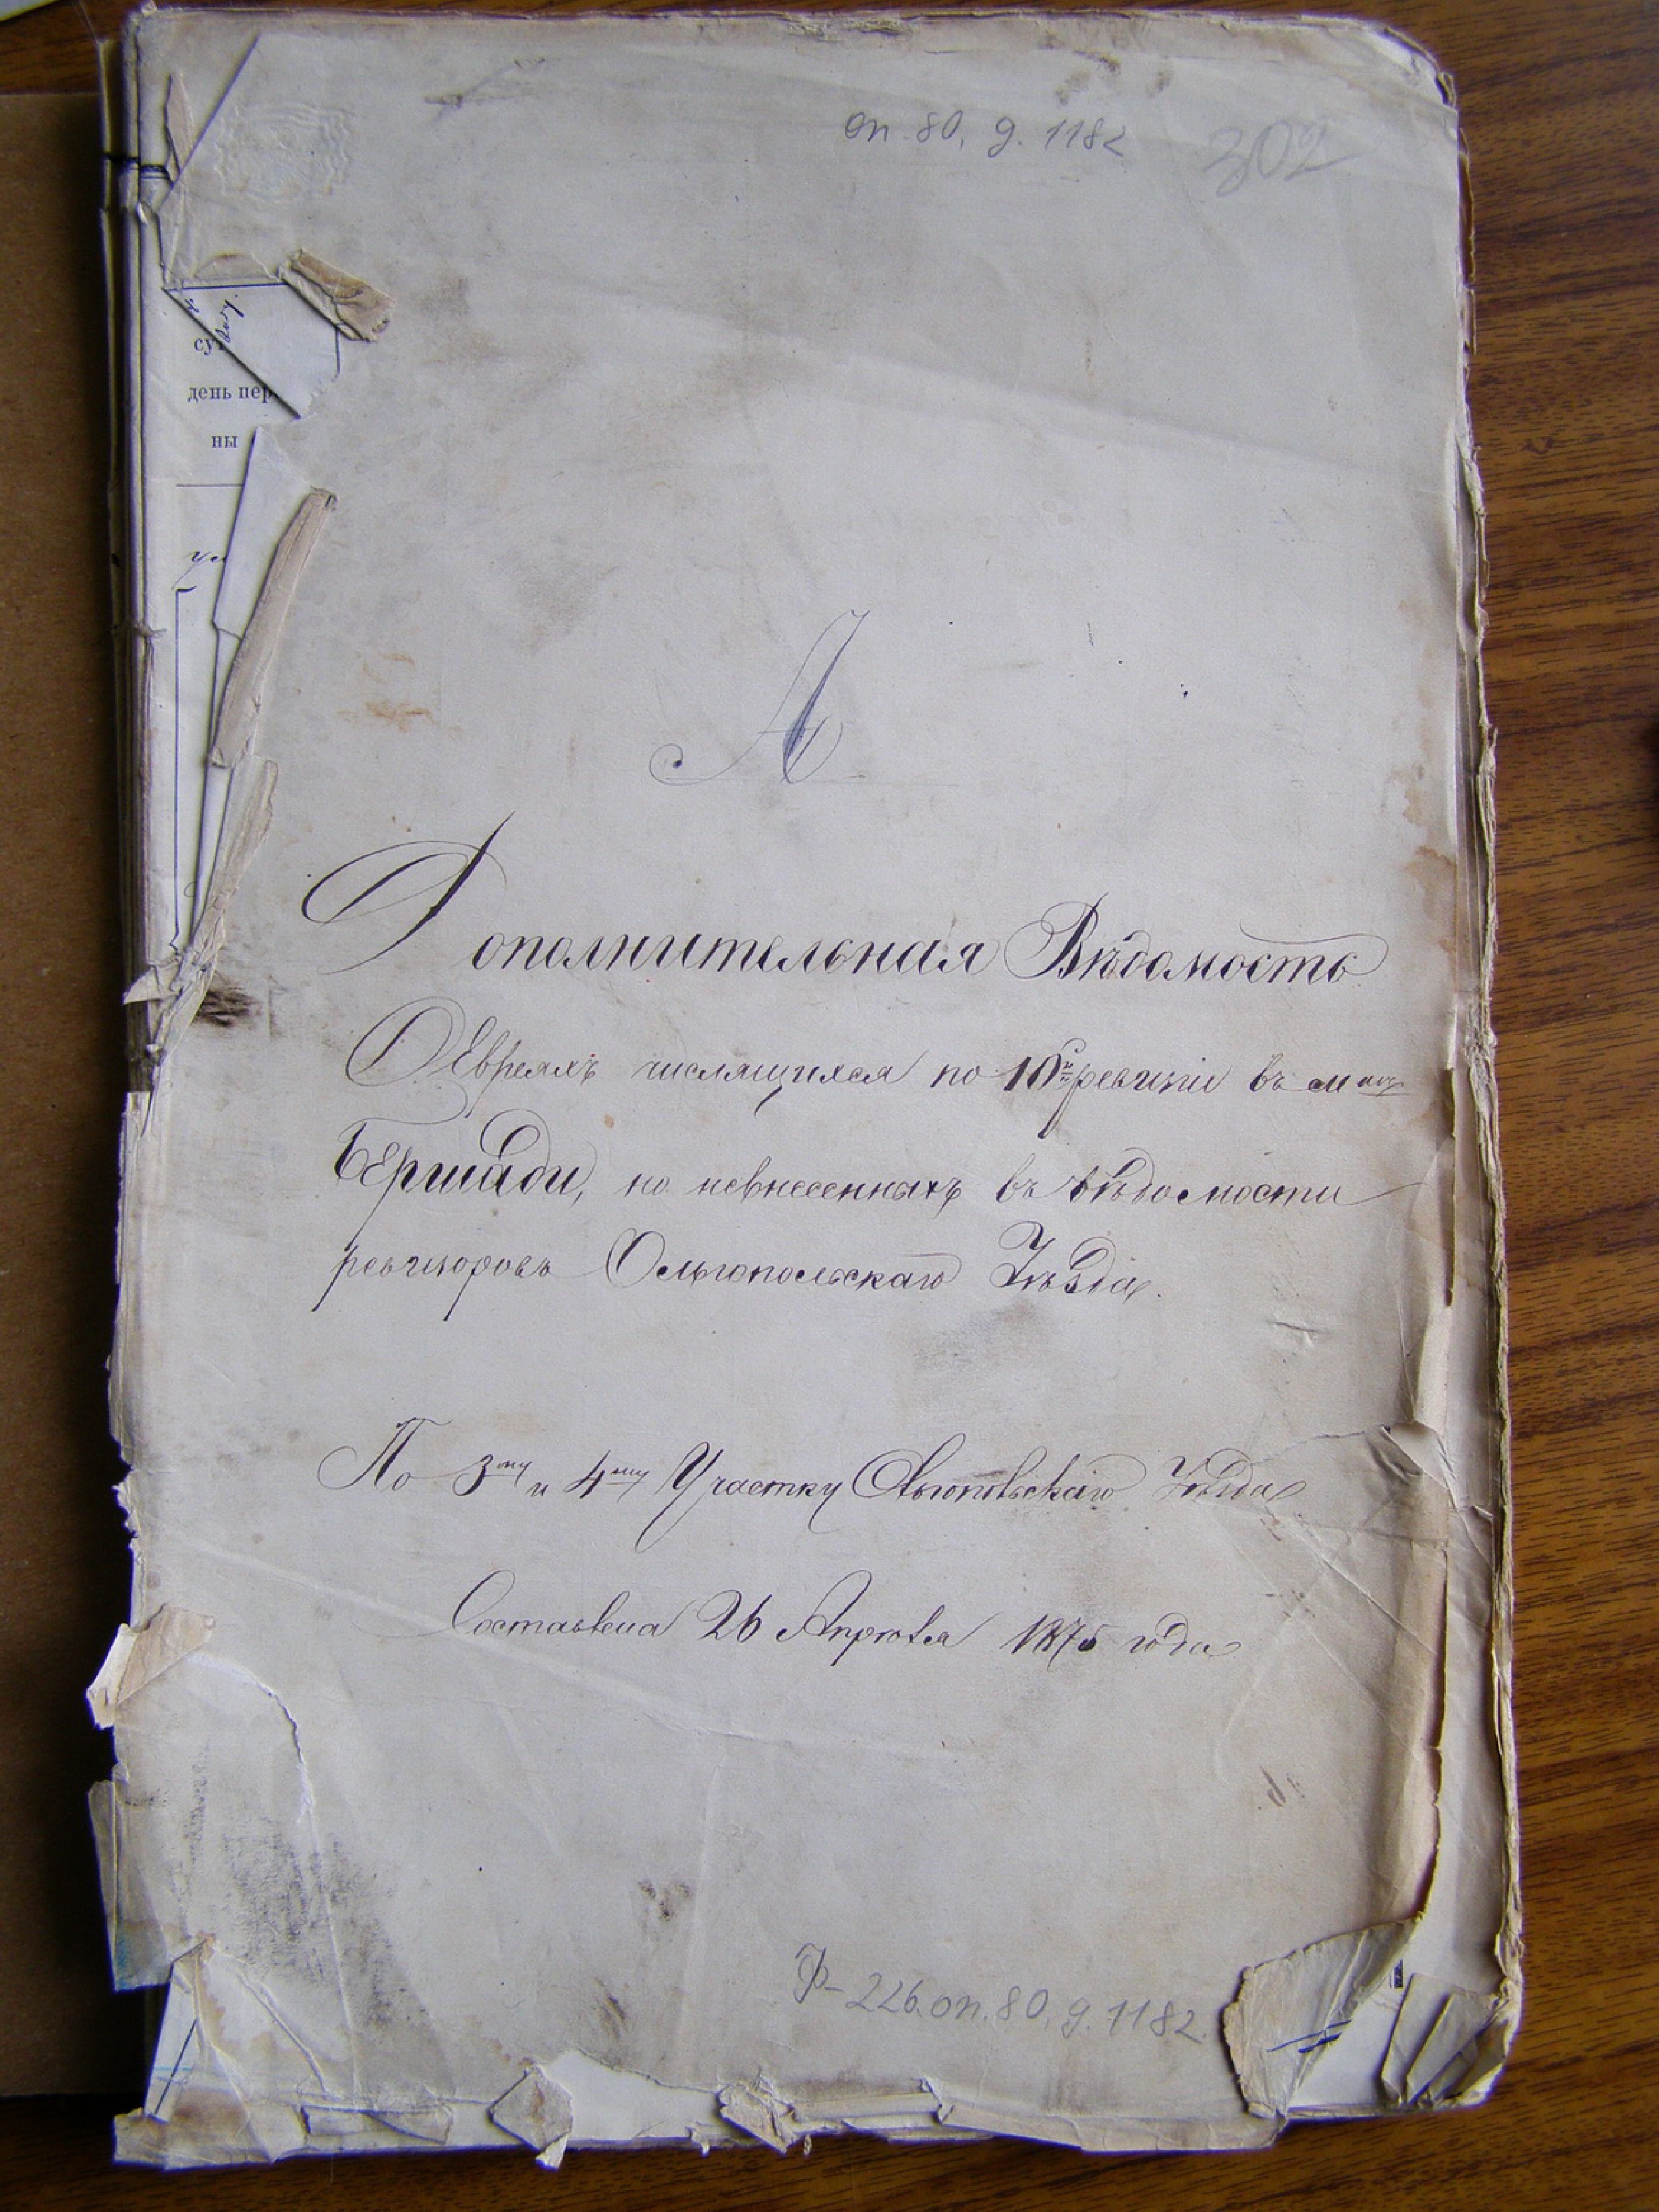 оп. 80, д. 1182
302
су
день пер
ны
А
Дополнительная Вѣдомость
О Евреяхъ числящихся по 10й ревизіи въ мѣст
Бершади, но невнесенныхъ въ вѣдомости
ревизоровъ Ольгопольскаго Уѣзда.
По 3му и 4му Участку Ольгопольскаго Уѣзда
Составлена 26 Апрѣля 1875 года
Ф-226 оп. 80, д. 1182.